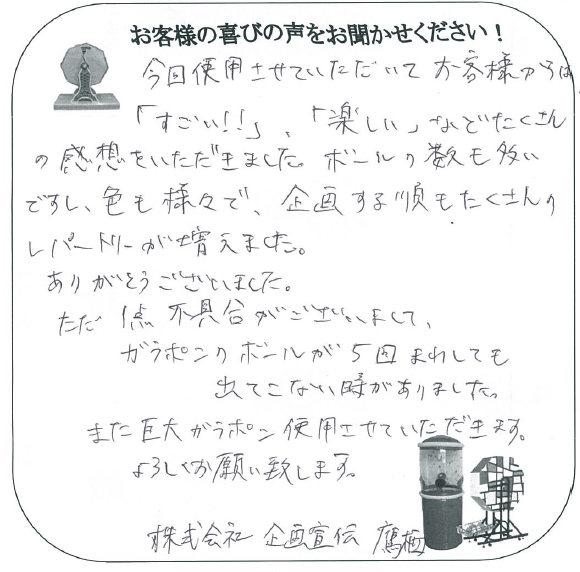 お客様の喜びの声をお聞かせください！
今回使用させていただいてお客様からは
「すごい!!」、「楽しい」などたくさん
の感想をいただきました。ボールの数も多い
ですし、色も様々で、企画する順もたくさんの
レパートリーが増えました。
ありがとうございました。
ただ1点不具合がございまして、
ガラポンのボールが5回まわしても
出てこない時がありました。
また巨大ガラポン使用させていただきます。
よろしくお願い致します。
株式会社 企画宣伝 鷹栖